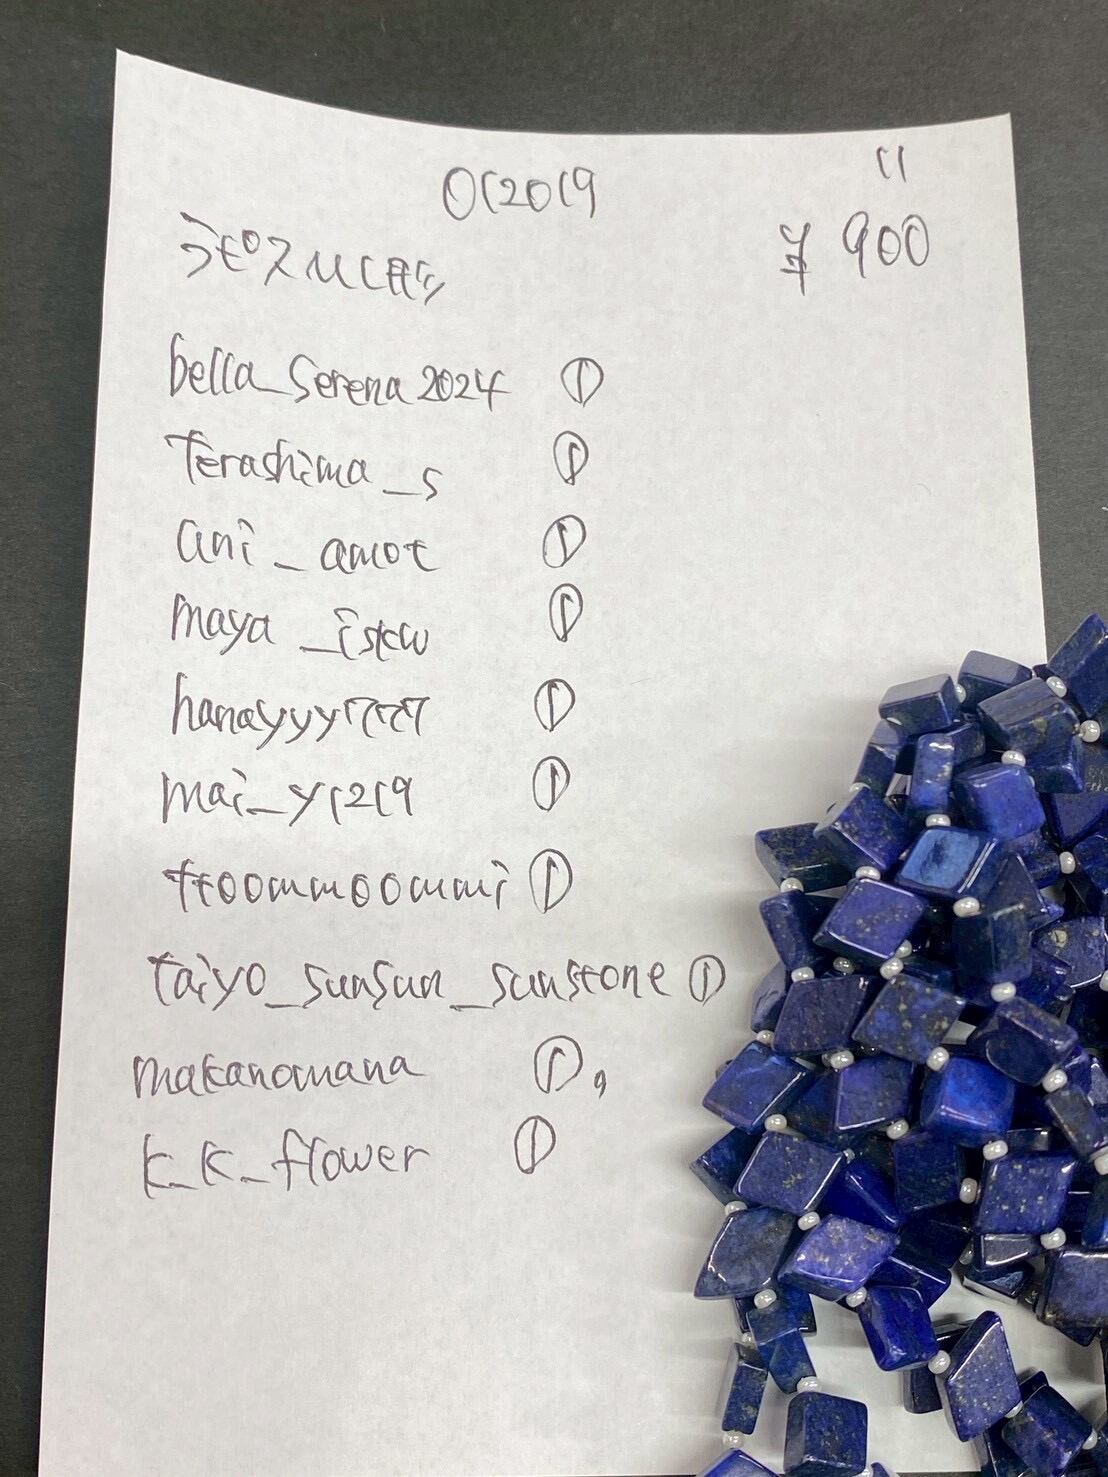 012019
11
¥ 900
ラピス
bella_serena2024 ①
Terashima_s ①
ani_amot ①
maya_iskw ①
hanayyy777 ①
mai_y1219 ①
ttoommoommi ①
taiyo_sunsun_sunstone ①
makanomana ①,
k_k_flower ①